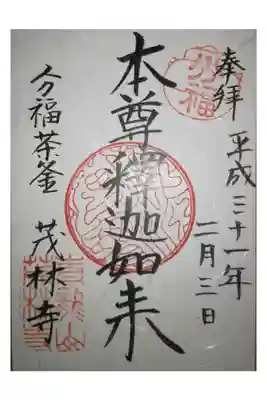 奉拝
平成三十一年
二月三日
本尊釋迦如来
分福茶釜
茂林寺
分福